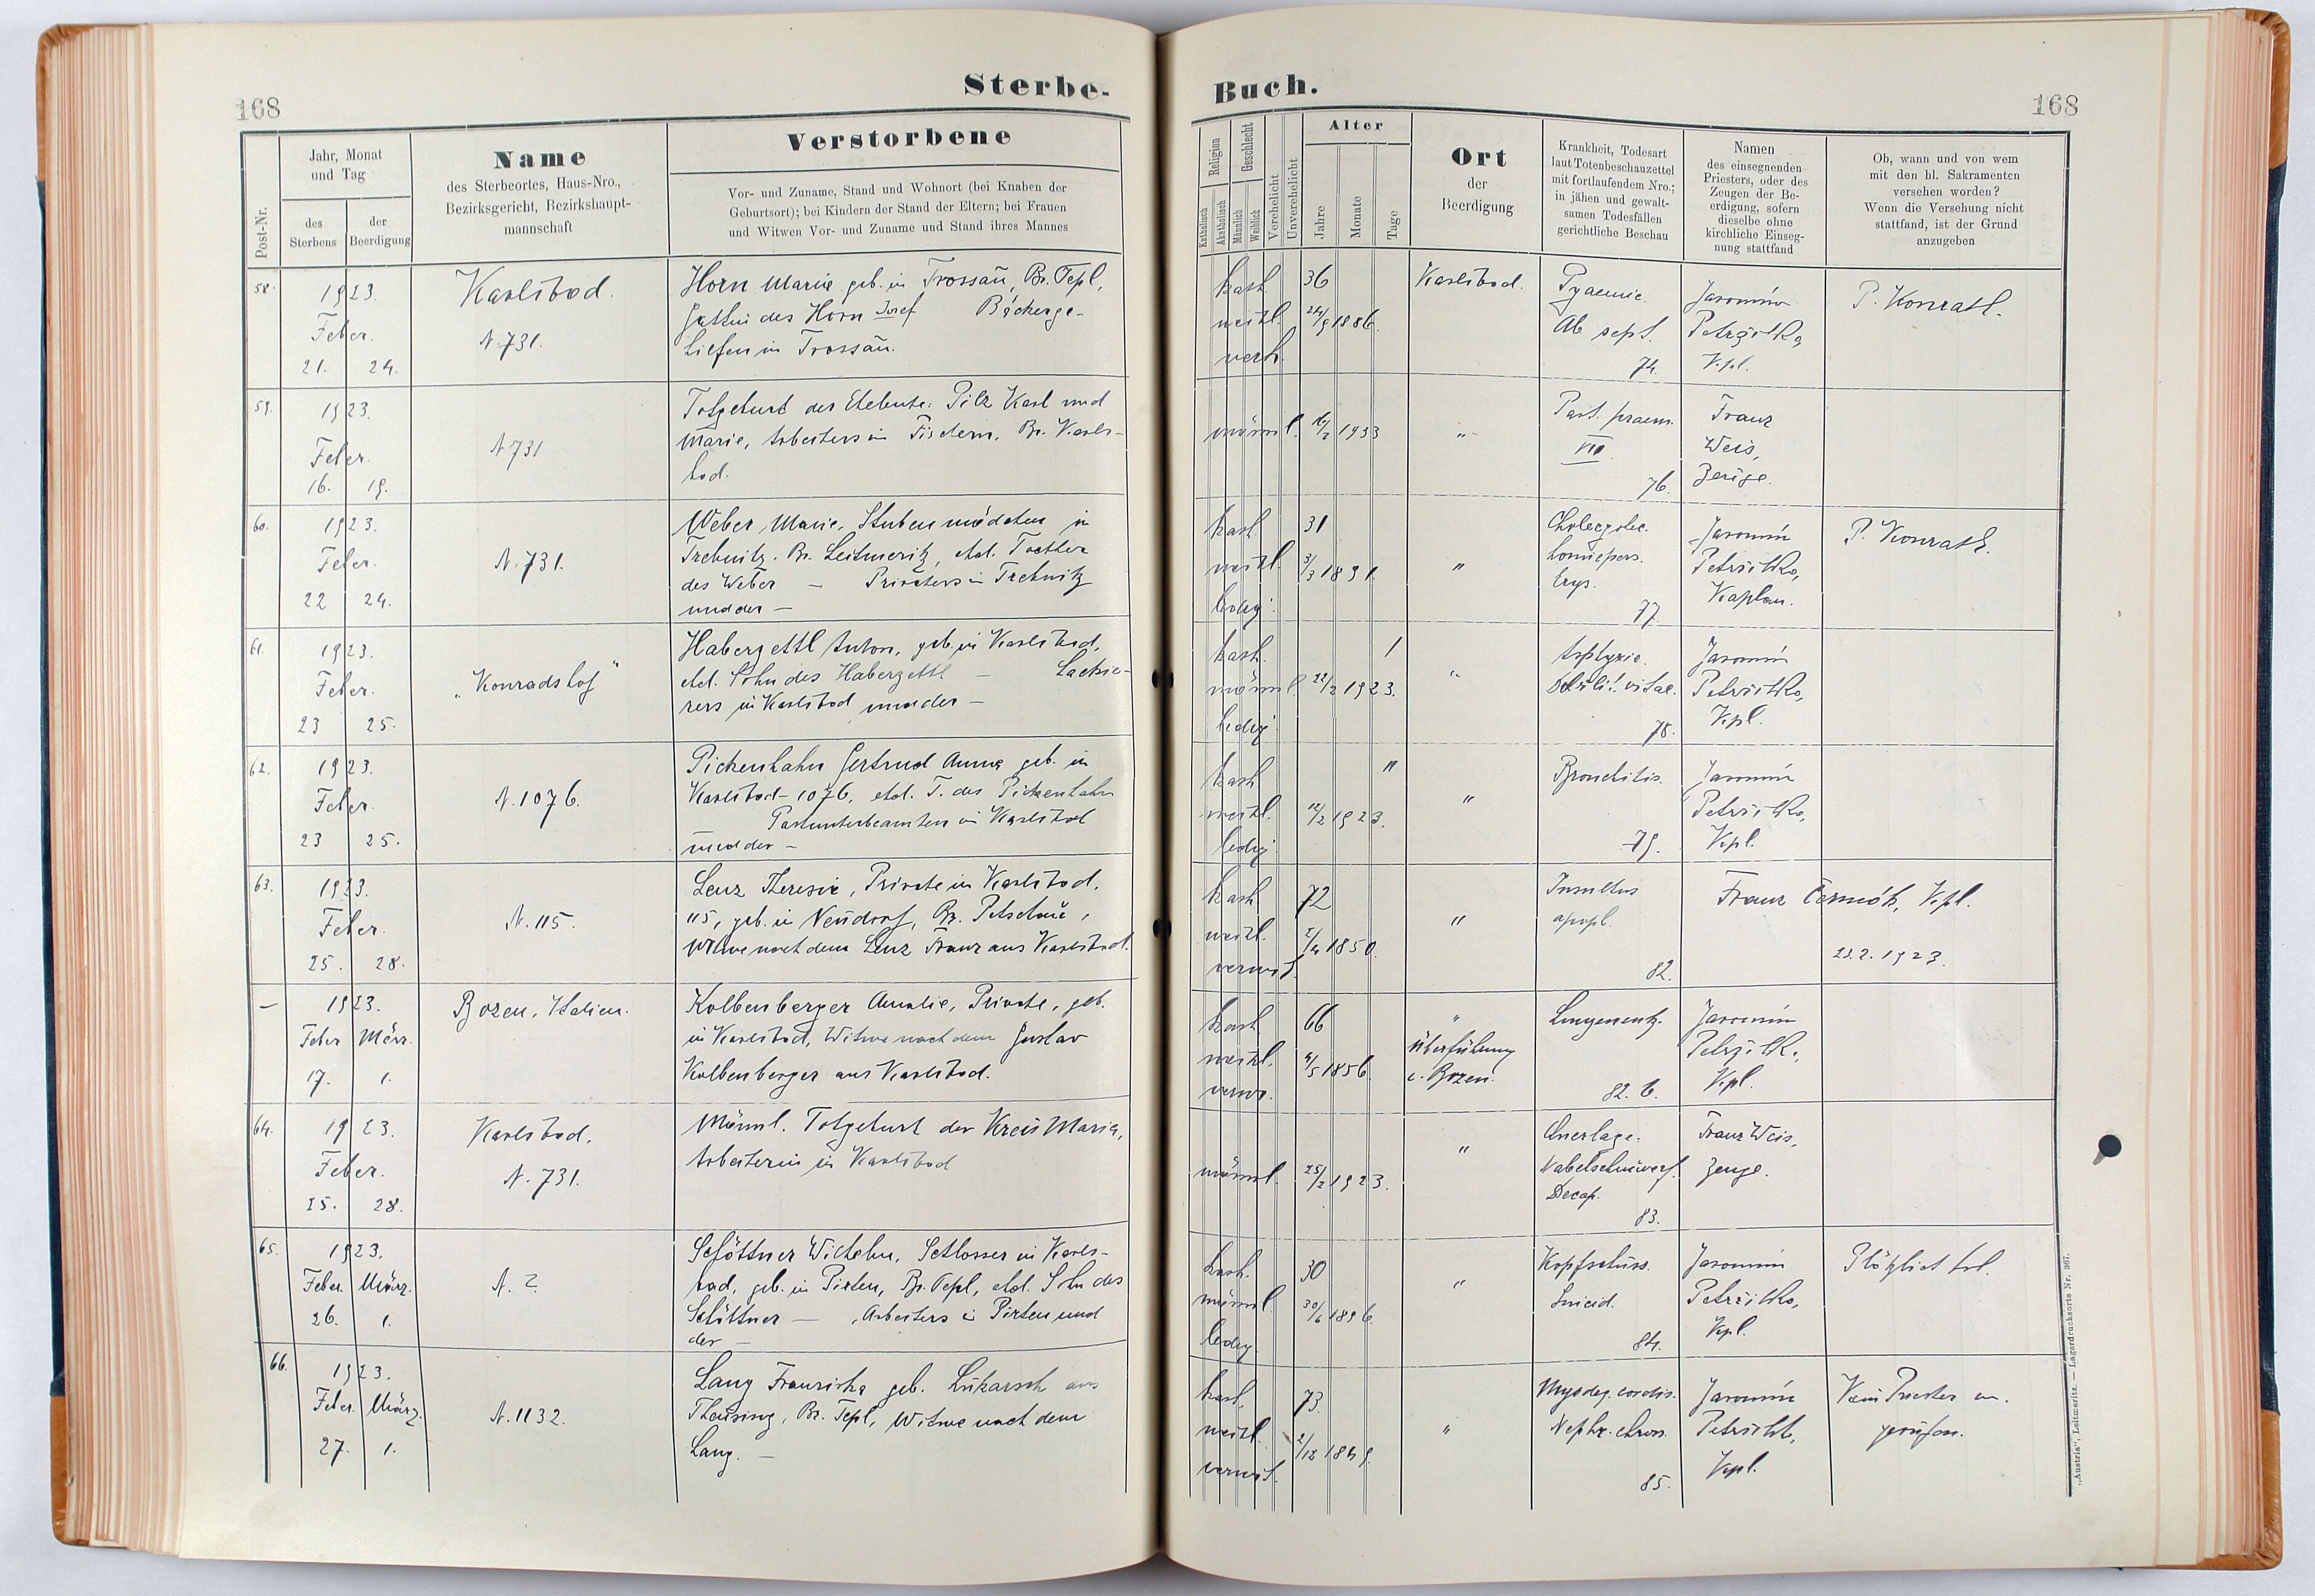 168
Sterbe-
Buch.
168
Post-Nr.
Jahr, Monat
und Tag
des
Sterbens
der
Beerdigung
Name
des Sterbeortes, Haus-Nro.,
Bezirksgericht, Bezirkshaupt-
mannschaft
Verstorbene
Vor- und Zuname, Stand und Wohnort (bei Knaben der
Geburtsort); bei Kindern der Stand der Eltern; bei Frauen
und Witwen Vor- und Zuname und Stand ihres Mannes
Religion
Katholisch
Akatholisch
Geschlecht
Männlich
Weiblich
Verehelicht
Unverehelicht
Alter
Jahre
Monate
Tage
Ort
der
Beerdigung
Krankheit, Todesart
laut Totenbeschauzettel
mit fortlaufendem Nro.;
in jähen und gewalt-
samen Todesfällen
gerichtliche Beschau
Namen
des einsegnenden
Priesters, oder des
Zeugen der Be-
erdigung, sofern
dieselbe ohne
kirchliche Einseg-
nung stattfand
Ob, wann und von wem
mit den hl. Sakramenten
versehen worden?
Wenn die Versehung nicht
stattfand, ist der Grund
anzugeben
58.
1923.
Feber.
21. 24.
Karlsbad.
N. 731.
Horn Marie geb. in Trossau, Bz. Tepl,
Gattin des Horn Josef Bäckerge-
hilfen in Trossau.
kath.
weibl.
verh.
36
24/9 1886.
Karlsbad.
Pyaemie.
Ab sept.
74.
Jaromin
Petrzilka,
Kpl.
P. Konrath.
59.
1923.
Feber.
16. 19.
N 731
Totgeburt der Eheleute: Pilz Karl und
Marie, Arbeiters in Fischern, Bz. Karls-
bad.
männl.
1933
"
Part. praem.
VII.
76.
Franz
Weis,
Zeuge.
60.
1923.
Feber.
22 24.
N. 731.
Weber Marie, Stubenmädchen in
Trebnitz. Bz. Leitmeritz, ehel. Tochter
des Weber — Privaters in Trebnitz
und der —
kath
weibl.
ledig.
31
3/3 1891.
"
77.
Jaromin
Petrzilka,
Kaplan.
P. Konrath.
61.
1923.
Feber.
23 25.
„Konradshof"
Habergettl Anton, geb. in Karlsbad,
ehel. Sohn des Habergettl — Lackie-
rers in Karlsbad und der —
kath.
männl.
ledig.
1
22/2 1923.
"
Asphyxie.
Debilit. vitae.
78.
Jaromin
Petrzilka,
Kpl.
62.
1923.
Feber.
23 25.
N. 1076.
Pickenhahn Gertrud Anna, geb. in
Karlsbad-1076, ehel. T. des Pickenhahn
Postunterbeamten in Karlsbad
und der —
kath
weibl.
ledig.
11
12/2 1923.
"
Bronchitis.
79.
Jaromin
Petrzilka,
Kpl.
63.
1923.
Feber.
25. 28.
N. 115.
Lenz Theresie, Private in Karlsbad,
115, geb. in Neudorf, Bz. Petschau,
Witwe nach dem Lenz Franz aus Karlsbad.
kath
weibl.
verwit.
72
1850.
"
Insultus
apopl.
82.
Franz Čermák, Kpl.
23.2.1923.
—
1923.
Feber März.
17. 1.
Bozen, Italien.
Kolbenberger Amalie, Private, geb.
in Karlsbad, Witwe nach dem Gustav
Kolbenberger aus Karlsbad.
kath
weibl.
verw.
66
4/5 1856.
"
Überführung
v. Bozen.
Lungenentz.
82. b.
Jaromin
Petrzilka,
Kpl.
64.
1923.
Feber.
25. 28.
Karlsbad.
N. 731.
Männl. Totgeburt der Kreis Maria,
Arbeiterin in Karlsbad
männl.
25/2 1923.
"
Querlage.
Nabelschnurvorf.
Decap.
83.
Franz Weis,
Zeuge.
65.
1923.
Feber. März.
26. 1.
N. ?
Schöttner Wilhelm, Schlosser in Karls-
bad, geb. in Pirten, Bz. Tepl, ehel. Sohn des
Schöttner — , Arbeiters in Pirten und
der —
kath.
männl.
ledig.
30
30/6 1896.
"
Kopfschuss.
Suicid.
84.
Jaromin
Petrzilka,
Kpl.
Plötzlich tot.
66.
1923.
Feber. März.
27. 1.
N. 1132.
Lang Franziska geb. Lukarsch aus
Theusing, Bz. Tepl, Witwe nach dem
Lang. —
kath.
weibl.
verwit.
73.
2/12 1849.
"
Myodeg. cordis.
Nephr. chron.
85.
Jaromin
Petrzilka,
Kpl.
Kein Priester
gerufen.
„Austria", Leitmeritz. — Lagerdrucksorte Nr. 367.